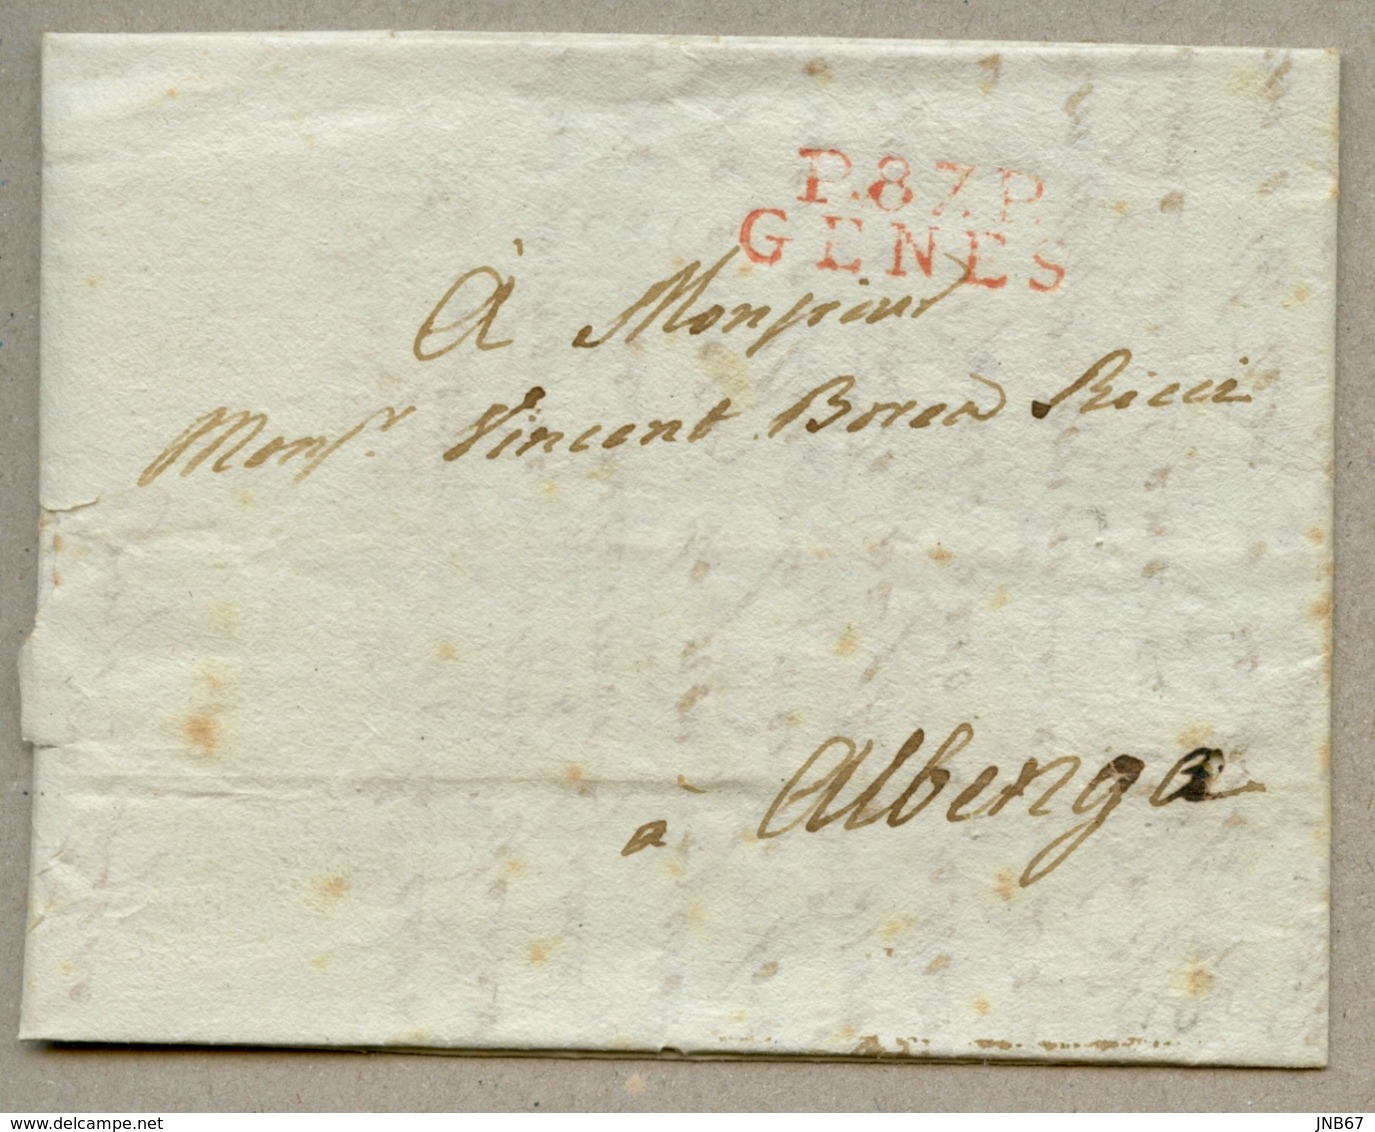 P.87.P.
GENES
À Monsieur
Monsr. Vincent Borea Ricci
à Albenga
www.delcampe.net
JNB67